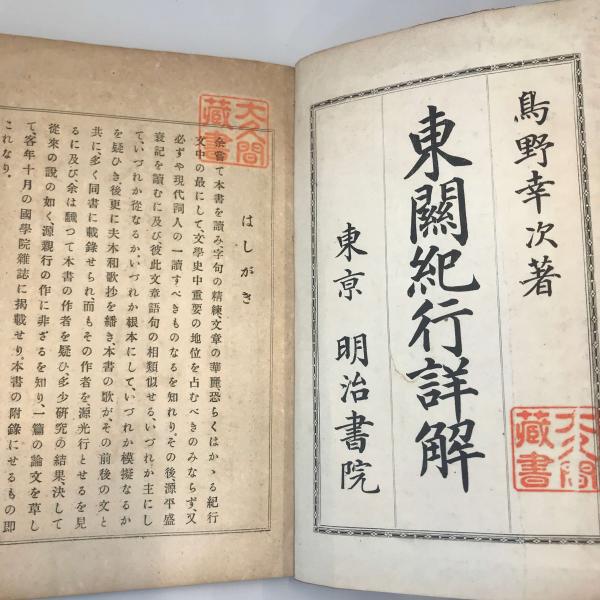 鳥野幸次著
東關紀行詳解
東亰 明治書院
大久間
藏書
大久間
藏書
はしがき
余嘗て本書を讀み、字句の精練、文章の華麗恐らくはかゝる紀行
文中の最にして、文學史中重要の地位を占むべきのみならず、又
必ずや現代詞人の一讀すべきものなるを知れり。その後、源平盛
衰記を讀むに及び彼此文章語句の相類似せる、いづれか主にし
て、いづれか從なるか、いづれか根本にして、いづれか模擬なるか
を疑ひき後更に夫木和歌抄を繙き、本書の歌がその前後の文と
共に、多く同書に載錄せられ、而もその作者を、源光行とせるを見
るに及び、余は驟つて本書の作者を疑ひ、多少研究の結果、決して
從來の說の如く、源親行の作に非ざるを知り、一篇の論文を草し
て、客年十月の國學院雜誌に揭載せり。本書の附錄にせるもの即
これなり。